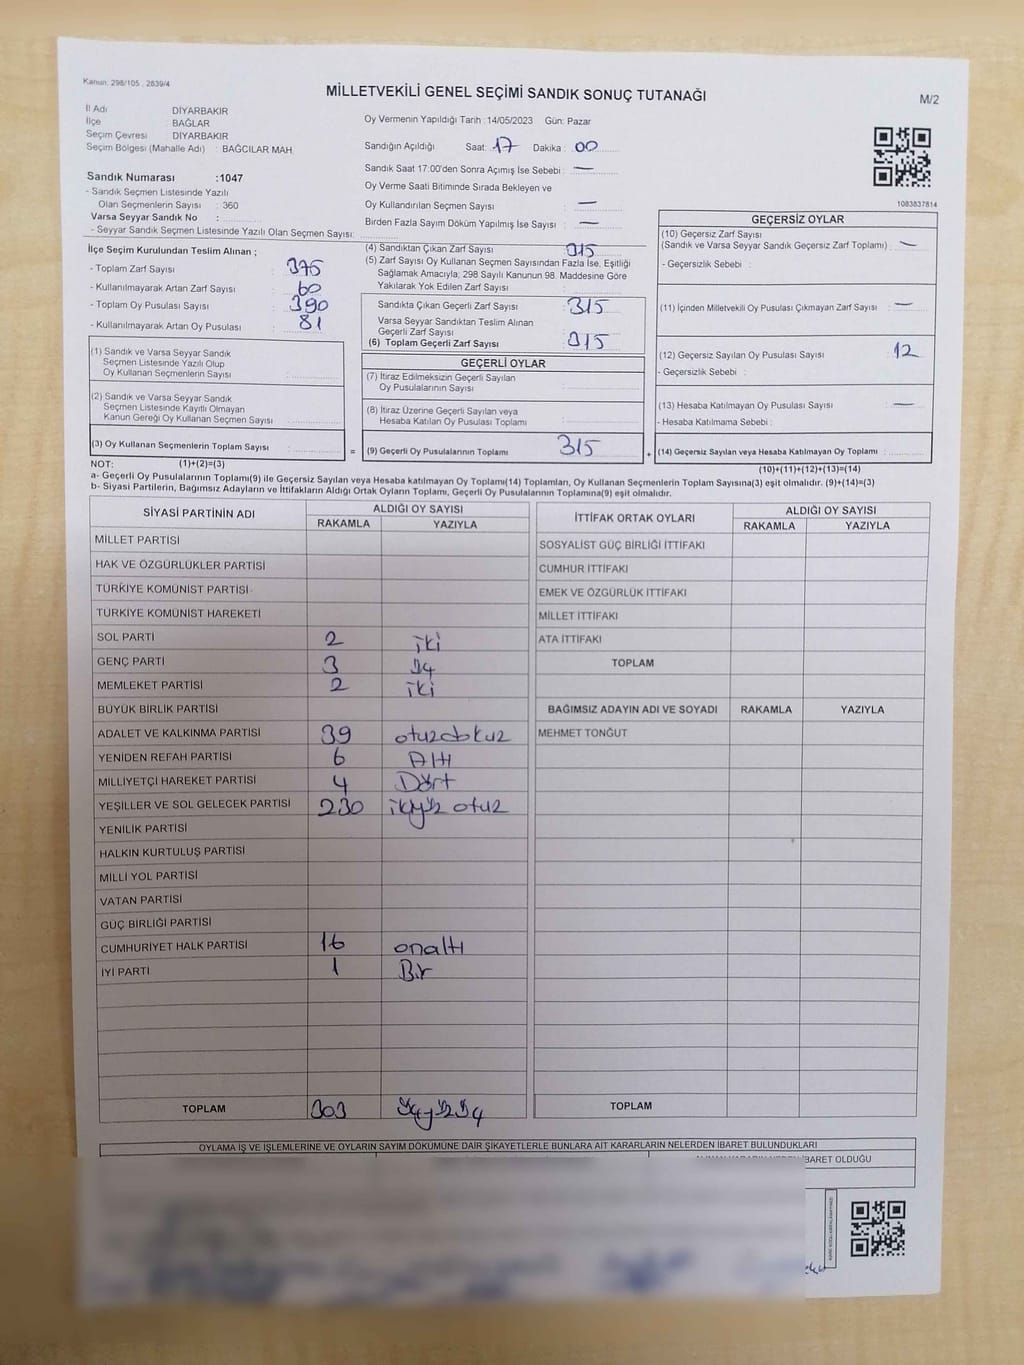 Kanun: 298/105 , 2839/4
MİLLETVEKİLİ GENEL SEÇİMİ SANDIK SONUÇ TUTANAĞI
M/2
İl Adı DİYARBAKIR
İlçe BAĞLAR
Seçim Çevresi DİYARBAKIR
Seçim Bölgesi (Mahalle Adı) : BAĞCILAR MAH.
Sandık Numarası :1047
- Sandık Seçmen Listesinde Yazılı
Olan Seçmenlerin Sayısı : 360
Varsa Seyyar Sandık No :
- Seyyar Sandık Seçmen Listesinde Yazılı Olan Seçmen Sayısı:
Oy Vermenin Yapıldığı Tarih :14/05/2023 Gün: Pazar
Sandığın Açıldığı Saat: 17 Dakika : 00
Sandık Saat 17:00'den Sonra Açımış İse Sebebi : —
Oy Verme Saati Bitiminde Sırada Bekleyen ve
Oy Kullandırılan Seçmen Sayısı : —
Birden Fazla Sayım Döküm Yapılmış İse Sayısı : —
1083837814
İlçe Seçim Kurulundan Teslim Alınan ;
- Toplam Zarf Sayısı : 375
- Kullanılmayarak Artan Zarf Sayısı : 60
- Toplam Oy Pusulası Sayısı : 390
- Kullanılmayarak Artan Oy Pusulası : 81
(1) Sandık ve Varsa Seyyar Sandık
Seçmen Listesinde Yazılı Olup
Oy Kullanan Seçmenlerin Sayısı :
(2) Sandık ve Varsa Seyyar Sandık
Seçmen Listesinde Kayıtlı Olmayan
Kanun Gereği Oy Kullanan Seçmen Sayısı :
(3) Oy Kullanan Seçmenlerin Toplam Sayısı :
(4) Sandıktan Çıkan Zarf Sayısı : 315
(5) Zarf Sayısı Oy Kullanan Seçmen Sayısından Fazla İse, Eşitliği
Sağlamak Amacıyla; 298 Sayılı Kanunun 98. Maddesine Göre
Yakılarak Yok Edilen Zarf Sayısı :
Sandıkta Çıkan Geçerli Zarf Sayısı : 315
Varsa Seyyar Sandıktan Teslim Alınan
Geçerli Zarf Sayısı :
(6) Toplam Geçerli Zarf Sayısı : 315
GEÇERLİ OYLAR
(7) İtiraz Edilmeksizin Geçerli Sayılan
Oy Pusulalarının Sayısı :
(8) İtiraz Üzerine Geçerli Sayılan veya
Hesaba Katılan Oy Pusulası Toplamı :
= (9) Geçerli Oy Pusulalarının Toplamı : 315
GEÇERSİZ OYLAR
(10) Geçersiz Zarf Sayısı
(Sandık ve Varsa Seyyar Sandık Geçersiz Zarf Toplamı) : —
- Geçersizlik Sebebi :
(11) İçinden Milletvekili Oy Pusulası Çıkmayan Zarf Sayısı : —
(12) Geçersiz Sayılan Oy Pusulası Sayısı : 12
- Geçersizlik Sebebi :
(13) Hesaba Katılmayan Oy Pusulası Sayısı : —
- Hesaba Katılmama Sebebi :
+ (14) Geçersiz Sayılan veya Hesaba Katılmayan Oy Toplamı :
NOT: (1)+(2)=(3)
(10)+(11)+(12)+(13)=(14)
a- Geçerli Oy Pusulalarının Toplamı(9) ile Geçersiz Sayılan veya Hesaba katılmayan Oy Toplamı(14) Toplamları, Oy Kullanan Seçmenlerin Toplam Sayısına(3) eşit olmalıdır. (9)+(14)=(3)
b- Siyasi Partilerin, Bağımsız Adayların ve İttifakların Aldığı Ortak Oyların Toplamı, Geçerli Oy Pusulalarının Toplamına(9) eşit olmalıdır.
SİYASİ PARTİNİN ADI ALDIĞI OY SAYISI
RAKAMLA YAZIYLA
MİLLET PARTİSİ
HAK VE ÖZGÜRLÜKLER PARTİSİ
TÜRKİYE KOMÜNİST PARTİSİ
TÜRKİYE KOMÜNİST HAREKETİ
SOL PARTİ 2 iki
GENÇ PARTİ 3 üç
MEMLEKET PARTİSİ 2 iki
BÜYÜK BİRLİK PARTİSİ
ADALET VE KALKINMA PARTİSİ 39 otuzdokuz
YENİDEN REFAH PARTİSİ 6 Altı
MİLLİYETÇİ HAREKET PARTİSİ 4 Dört
YEŞİLLER VE SOL GELECEK PARTİSİ 230 ikiyüz otuz
YENİLİK PARTİSİ
HALKIN KURTULUŞ PARTİSİ
MİLLİ YOL PARTİSİ
VATAN PARTİSİ
GÜÇ BİRLİĞİ PARTİSİ
CUMHURİYET HALK PARTİSİ 16 onaltı
İYİ PARTİ 1 Bir
TOPLAM 303 üçyüzüç
İTTİFAK ORTAK OYLARI ALDIĞI OY SAYISI
RAKAMLA YAZIYLA
SOSYALİST GÜÇ BİRLİĞİ İTTİFAKI
CUMHUR İTTİFAKI
EMEK VE ÖZGÜRLÜK İTTİFAKI
MİLLET İTTİFAKI
ATA İTTİFAKI
TOPLAM
BAĞIMSIZ ADAYIN ADI VE SOYADI RAKAMLA YAZIYLA
MEHMET TONĞUT
TOPLAM
OYLAMA İŞ VE İŞLEMLERİNE VE OYLARIN SAYIM DÖKÜMÜNE DAİR ŞİKAYETLERLE BUNLARA AİT KARARLARIN NELERDEN İBARET BULUNDUKLARI
İBARET OLDUĞU